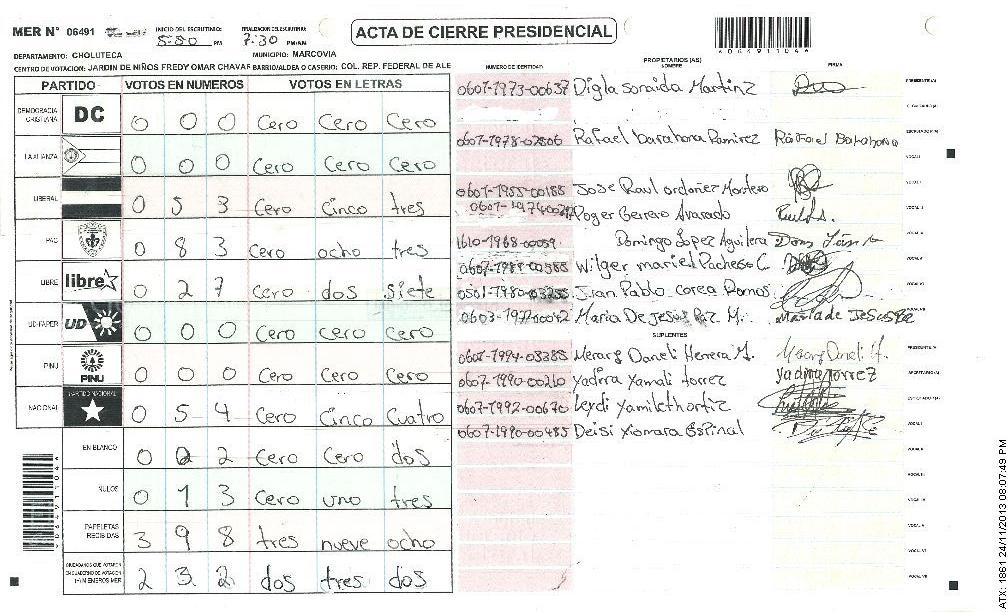 MER N° 06491 INICIO DEL ESCRUTINIO: 5:30 PM FINALIZACION DEL ESCRUTINIO: 7:30 PM/AM
ACTA DE CIERRE PRESIDENCIAL
DEPARTAMENTO: CHOLUTECA MUNICIPIO: MARCOVIA
CENTRO DE VOTACION: JARDIN DE NIÑOS FREDY OMAR CHAVAR BARRIO/ALDEA O CASERIO: COL. REP. FEDERAL DE ALE
PARTIDO VOTOS EN NUMEROS VOTOS EN LETRAS
DEMOCRACIA CRISTIANA DC 0 0 0 Cero Cero Cero
LA ALIANZA 0 0 0 Cero Cero Cero
LIBERAL 0 5 3 Cero Cinco tres
PAC 0 8 3 Cero ocho tres
LIBRE libre 0 2 7 Cero dos siete
UD-FAPER UD 0 0 0 Cero Cero Cero
PINU PINU 0 0 0 Cero Cero Cero
NACIONAL PARTIDO NACIONAL 0 5 4 Cero Cinco Cuatro
EN BLANCO 0 0 2 Cero Cero dos
NULOS 0 1 3 Cero uno tres
PAPELETAS RECIBIDAS 3 9 8 tres nueve ocho
CIUDADANOS QUE VOTARON 2 3 2 dos tres dos
NUMERO DE IDENTIDAD PROPIETARIOS (AS) NOMBRE FIRMA
0607-1973-00637 Digla soraida Martinez
0607-1978-02806 Rafael barahona Ramirez Rafael Barahona
0607-1955-00188 Jose Raul ordoñez Montero
Roger Berrero Alvarado
1610-1968-00059 Domingo Lopez Aguilera
Wilger mariel Pacheco C.
0501-1980-03255 Juan Pablo corea Ramos
0603-1977-00042 Maria De Jesus Paz M. Maria de Jesus Paz
SUPLENTES
0607-1994-03385 Merary Daneli Herrera M. Merary Daneli H.
0607-1990-00210 Yadira Yamali torrez Yadira torrez
0607-1992-00670 Leydi Yamileth ortiz
0607-1990-00485 Deisi Xiomara Espinal
ATX: 1861 24/11/2013 08:07:49 PM